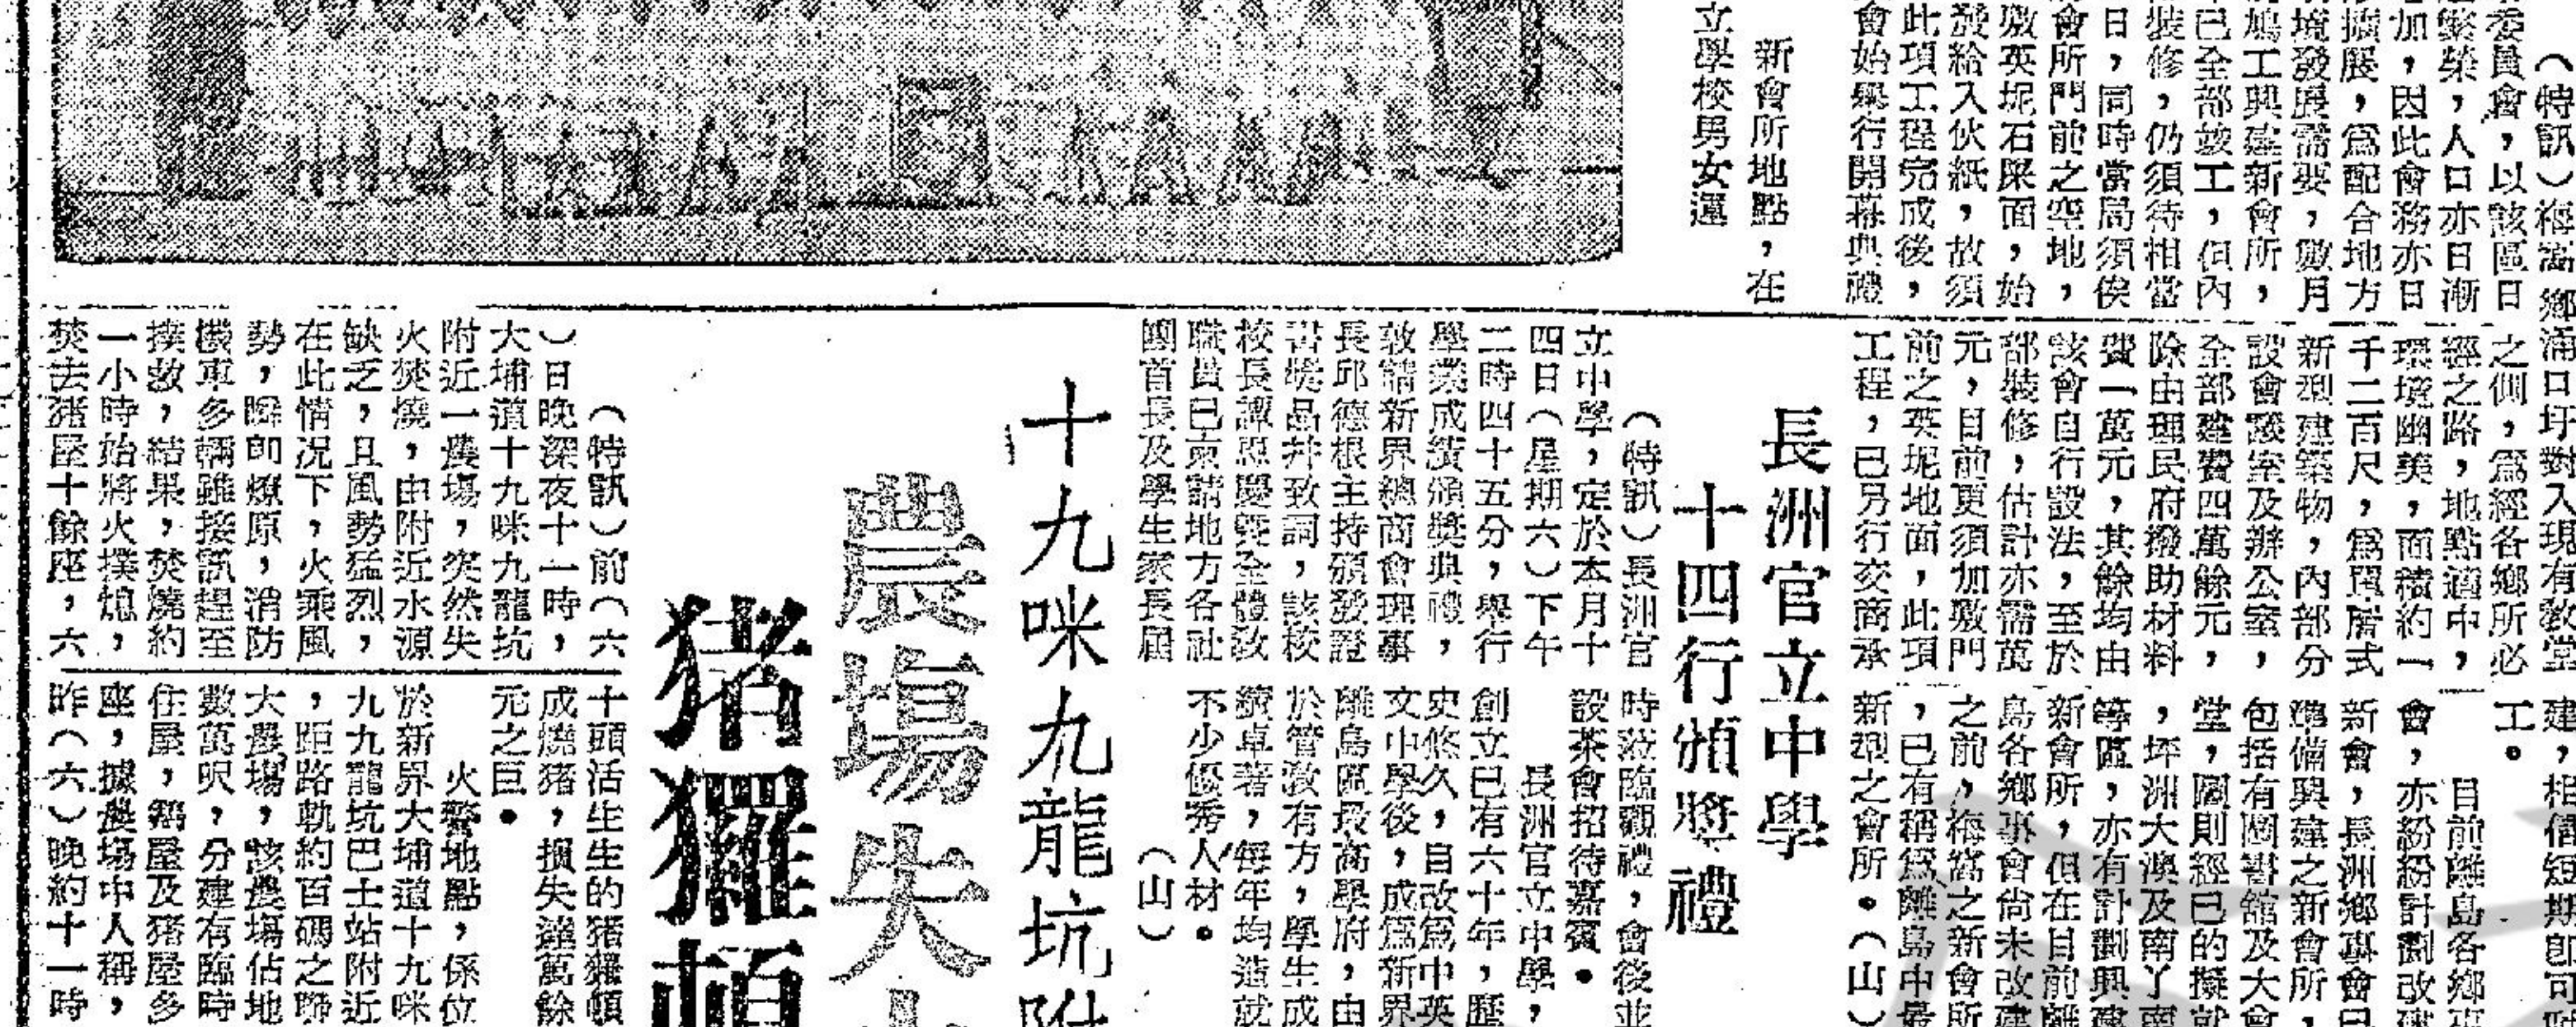 （特訊）梅窩鄉
委員會，以該區日
繁榮，人口亦日漸
加，因此會務亦日
擴展，爲配合地方
環境發展需要，數月
鳩工興建新會所，
已全部竣工，但內
裝修，仍須待相當
日，同時當局須俟
會所門前之空地，
敷英坭石屎面，始
發給入伙紙，故須
此項工程完成後，
會始舉行開幕典禮
新會所地點，在
立學校男女運
涌口圩對入現有教堂
之側，爲經各鄉所必
經之路，地點適中，
環境幽美，面積約一
千二百尺，爲單層式
新型建築物，內部分
設會議室及辦公室，
全部建費四萬餘元，
除由理民府撥助材料
費一萬元，其餘均由
該會自行設法，至於
部裝修，估計亦需萬
元，目前更須加敷門
前之英坭地面，此項
工程，已另行交商承
建，相信短期即可
工。
目前離島各鄉事
會，亦紛紛計劃改建
新會，長洲鄉事會已
準備興建之新會所，
包括有圖書館及大會
堂，圖則經已的擬就
，坪洲大澳及南丫南
等區，亦有計劃興建
新會所，但在目前離
島各鄉事會尚未改建
之前，梅窩之新會所
，已有稱爲離島中最
新型之會所。（山）
長洲官立中學
十四行頒獎禮
（特訊）長洲官
立中學，定於本月十
四日（星期六）下午
二時四十五分，舉行
學業成績頒獎典禮，
敦請新界總商會理事
長邱德根主持頒發證
書獎品幷致詞，該校
校長譚思慶曁全體敎
職員已柬請地方各社
團首長及學生家長屆
時蒞臨觀禮，會後並
設茶會招待嘉賓。
長洲官立中學，
創立已有六十年，歷
史悠久，自改爲中英
文中學後，成爲新界
離島區最高學府，由
於管敎有方，學生成
績卓著，每年均造就
不少優秀人材。
（山）
十九咪九龍坑附
農塲失火
猪玀頓
（特訊）前（六
）日晚深夜十一時，
大埔道十九咪九龍坑
附近一農塲，突然失
火焚燒，由附近水源
缺乏，且風勢猛烈，
在此情況下，火乘風
勢，瞬卽燎原，消防
機車多輛雖接訊趕至
撲救，結果，焚燒約
一小時始將火撲熄，
焚去猪屋十餘座，六
十頭活生生的猪玀頓
成燒猪，損失達萬餘
元之巨。
火警地點，係位
於新界大埔道十九咪
九九龍坑巴士站附近
，距路軌約百碼之聯
大農塲，該農塲佔地
數萬呎，分建有臨時
住屋，鷄屋及猪屋多
座，據農塲中人稱，
昨（六）晚約十一時